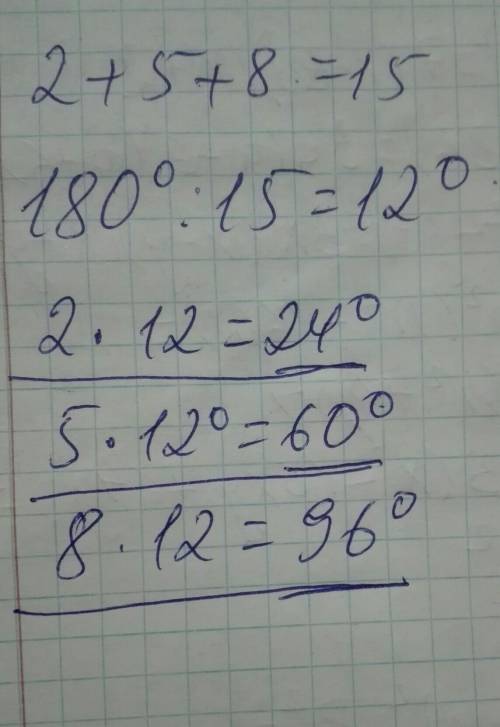 2+5+8=15
180°:15=12°
2·12=24°
5·12°=60°
8·12=96°